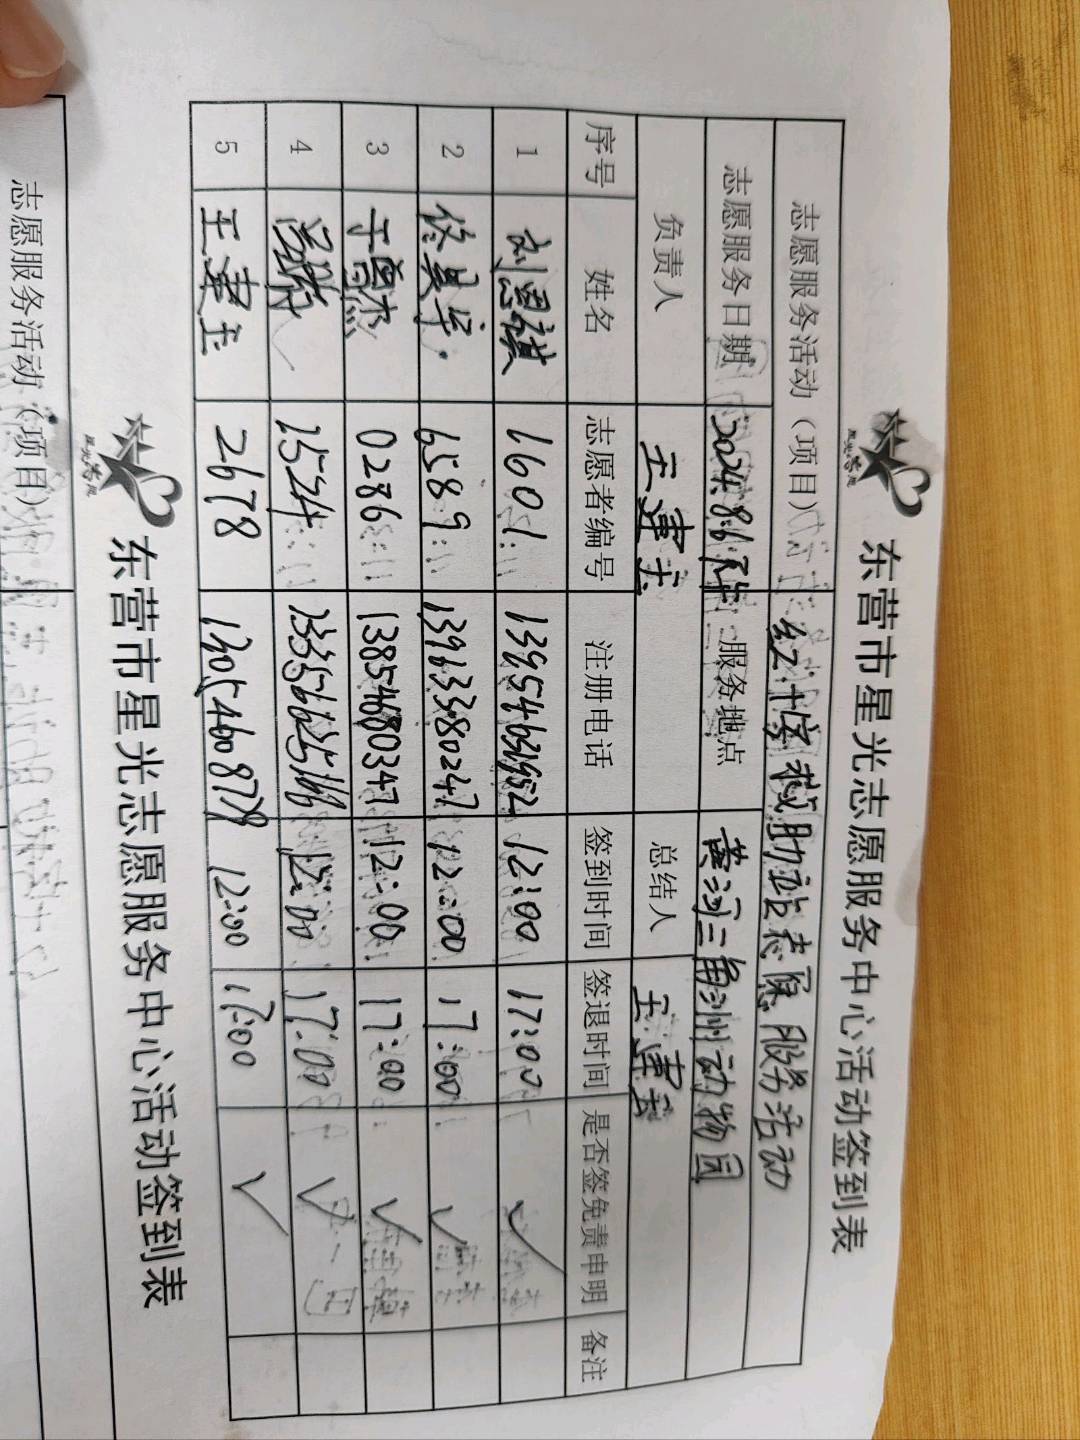 东营市星光志愿服务中心活动签到表
志愿服务活动（项目） 红十字救助站志愿服务活动
志愿服务日期 2024.8.6 服务地点 黄河三角洲动物园
负责人 王建玉 总结人 王建玉
序号 姓名 志愿者编号 注册电话 签到时间 签退时间 是否签免责申明 备注
1 刘恩祺 1601 12:00 17:00 ✓
2 佟昊 6589 13963380247 12:00 17:00 ✓
3 于 0286 13854680347 12:00 17:00 ✓
4 1524 12:00 17:00 ✓
5 王建玉 2678 13054608779 12:00 17:00 ✓
东营市星光志愿服务中心活动签到表
志愿服务活动（项目）